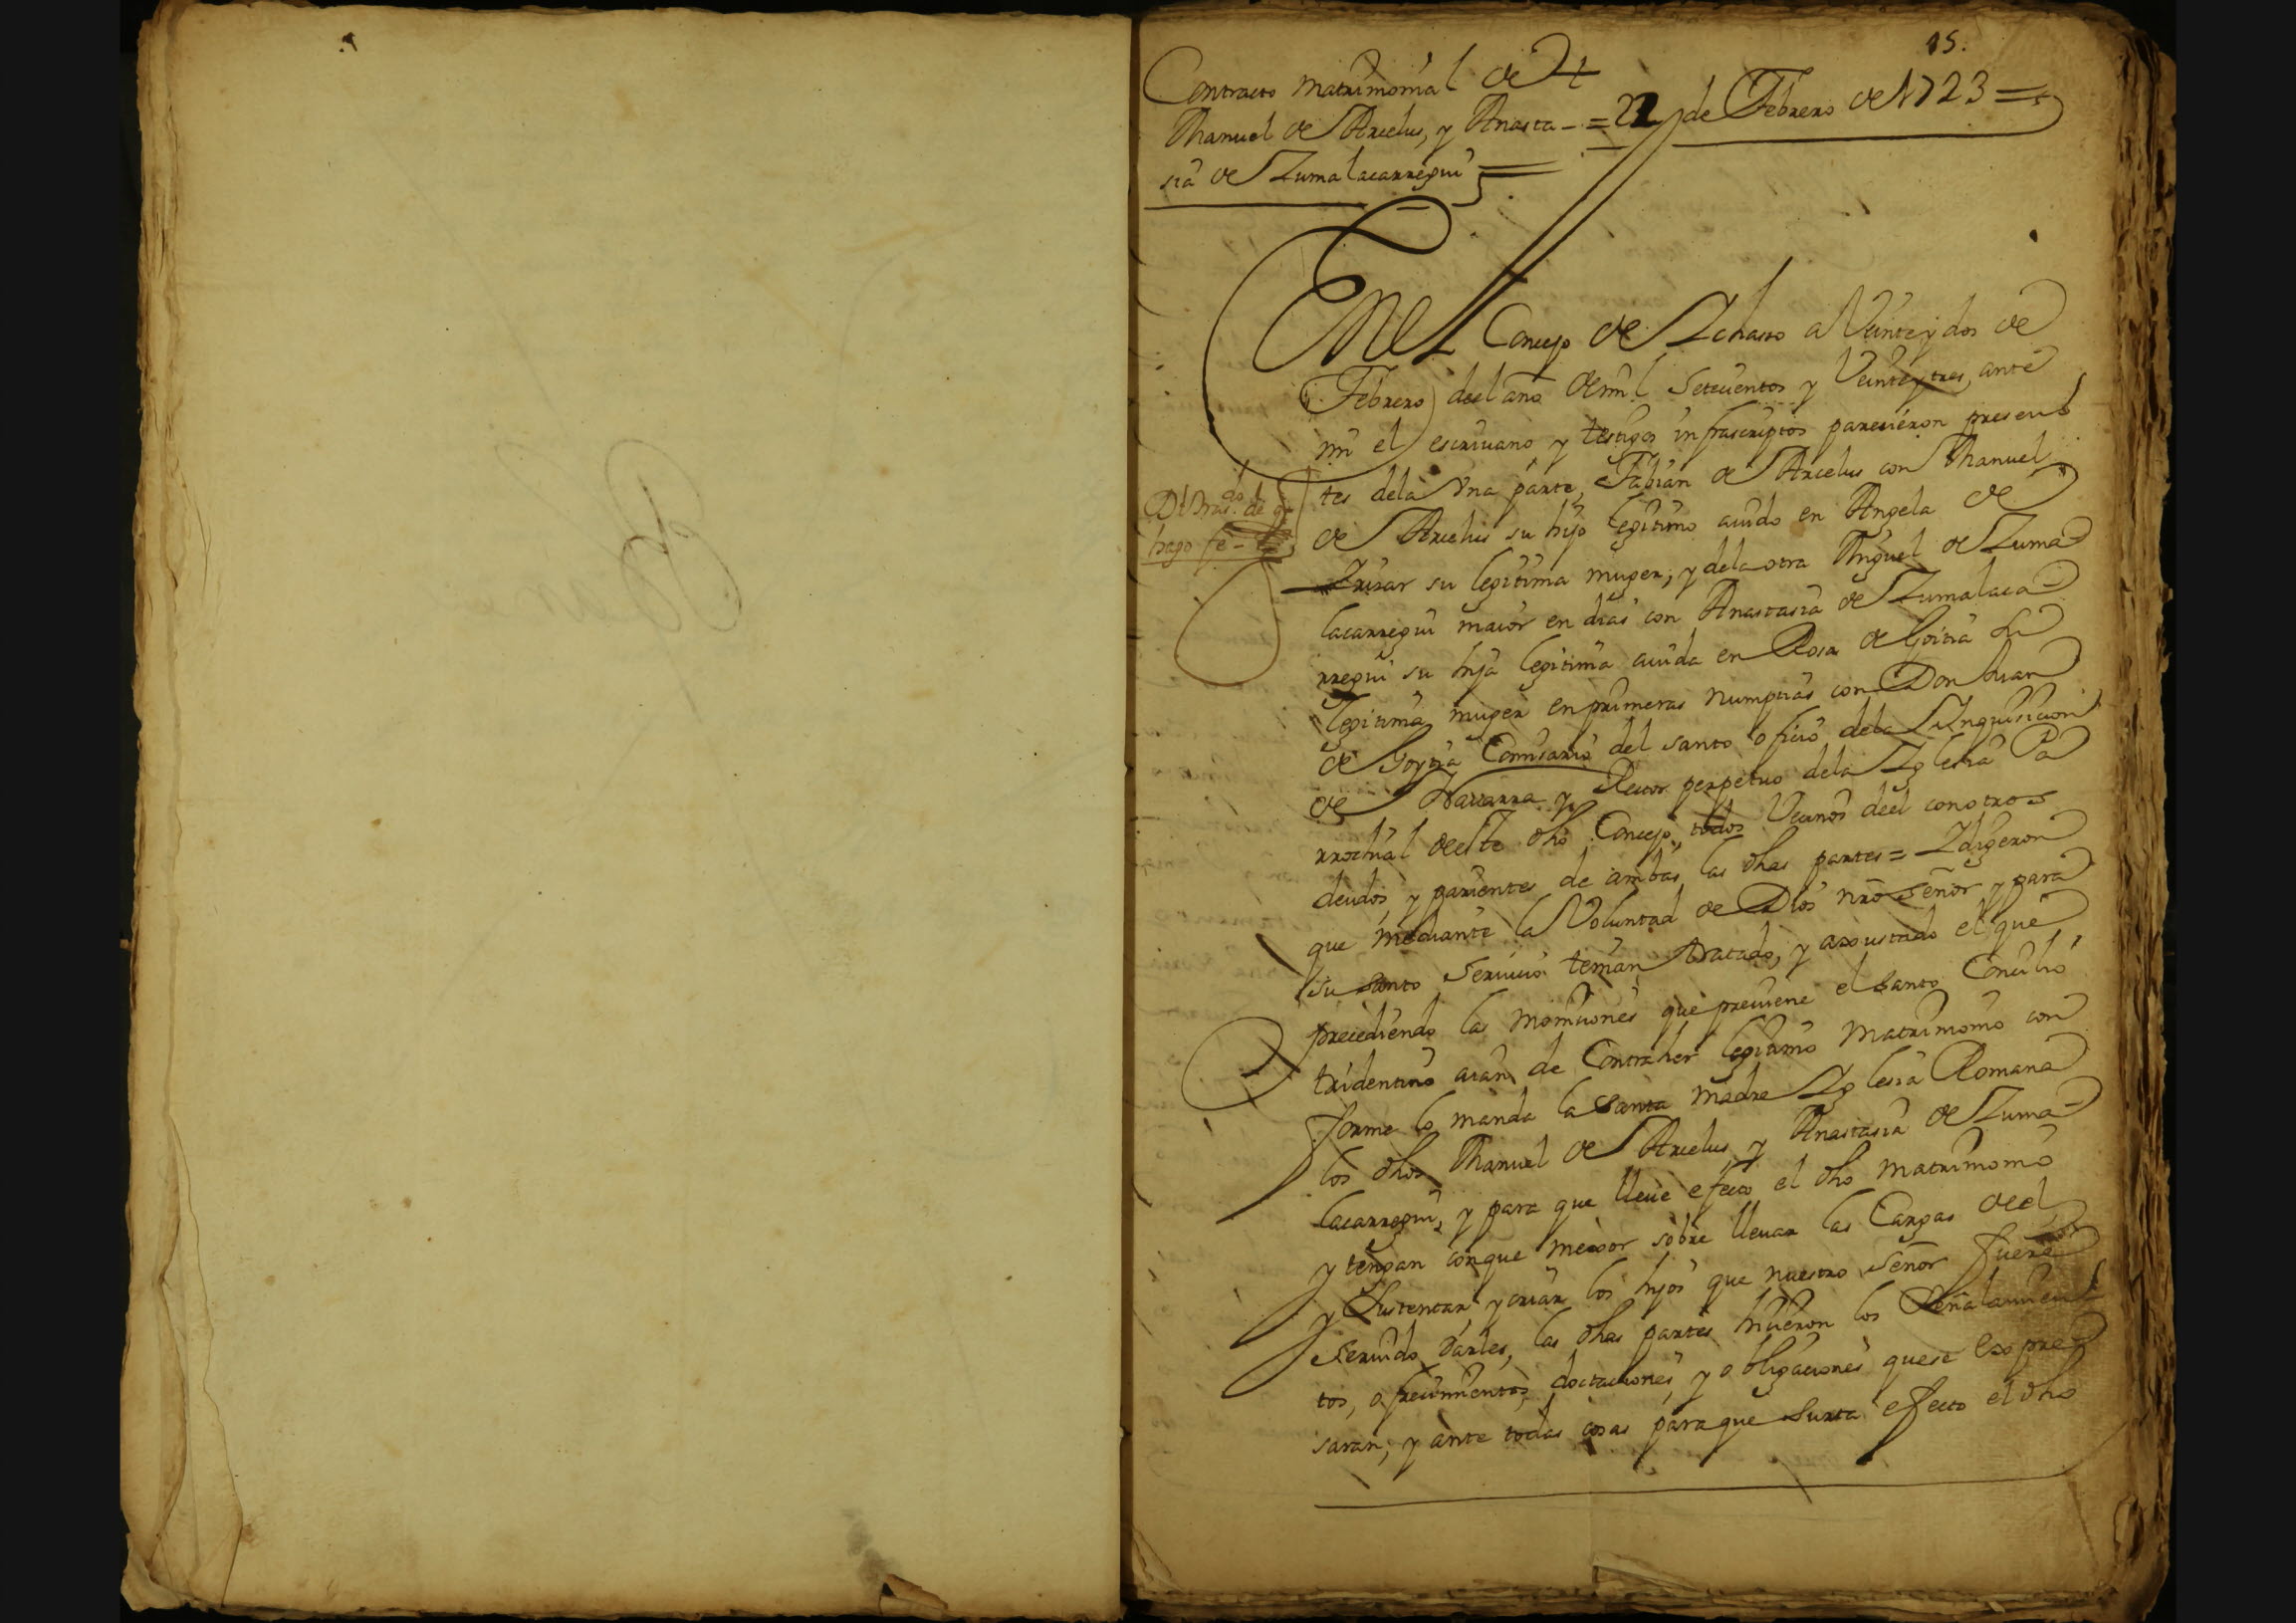 15.
Contracto matrimonial de
Manuel de Arcelus, y Anasta-
sia de Zumalacarregui
= 22 de Febrero de 1723 =
En el Concejo de Ichaso a Veinte y dos de
Febrero deel año de mil setecientos y Veinte y tres, ante
mi el escriuano y testigos infrascriptos parecieron presen
tes dela Vna parte, Fabian de Arcelus con Manuel
de Arcelus su hijo legitimo auido en Angela de
Irizar su legitima muger, y dela otra Miguel de Zuma
lacarregui maior en dias con Anastasia de Zumalaca
rregui su hija legitima auida en Rosa de Goitia su
legitima muger en primeras numptias con Don Juan
de Goytia Comisario del santo oficio dela Inquisicion
de Nauarra y Rector perpetuo dela Iglesia Pa
rrochial deeste dho Concejo, todos Vecinos deel con otros
deudos, y parientes de ambas las dhas partes = I digeron
que mediante la Voluntad de Dios nro señor y para
su santo seruicio tenian tratado, y axustado el que
precediendo las moniciones que preuiene el santo Concilio
tridentino aian de Contraher legitimo matrimonio con
forme lo manda la santa madre Iglesia Romana
los dhos Manuel de Arcelus y Anastasia de Zuma-
lacarregui, y para que lleue efecto el dho matrimonio
y tengan conque mexor sobre lleuar las Cargas deel
y sustentar, y criar los hijos que nuestro señor fuere
seruido darles, las dhas partes hicieron los señalamien
tos, ofrecimientos, doctaciones, y obligaciones quese expre
saran; y ante todas cosas paraque surta efecto el dho
hago fe